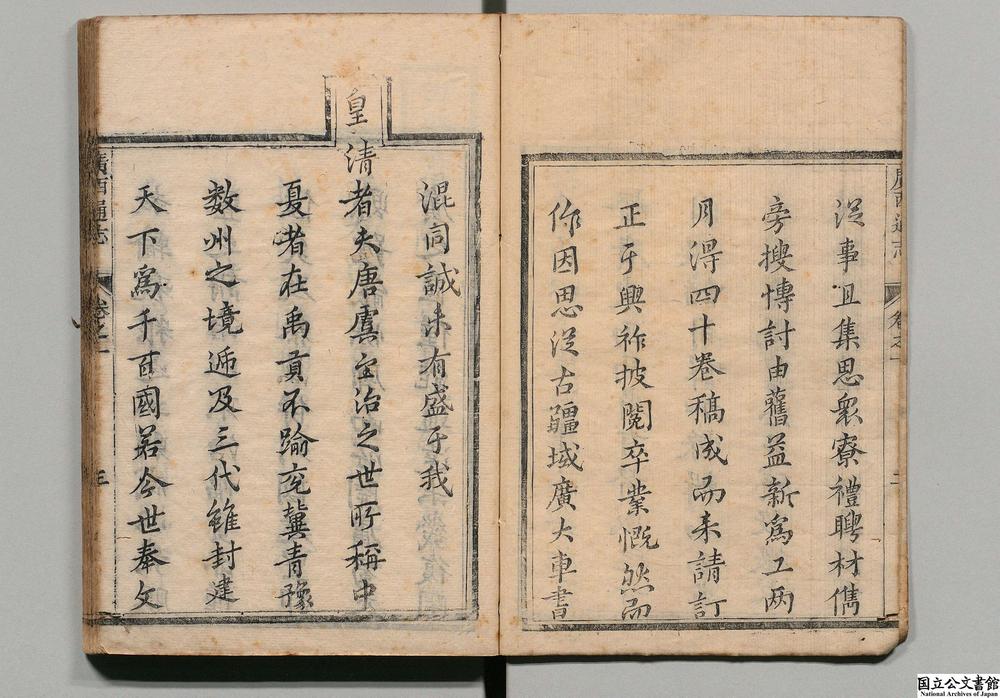 從事且集思衆寮禮聘材儁
旁搜慱討由舊益新爲工两
月得四十卷稿成而来請訂
正于興祚披閱卒業慨然而
作因思從古疆域廣大車書
混同誠未有盛于我
皇清者夫唐虞至治之世所稱中
夏者在禹貢不踰兖冀青豫
数州之境遞及三代雖封建
天下爲千百國若今世奉文
廣西通志
卷之一
二
廣西通志
卷之一
三
国立公文書館
National Archives of Japan